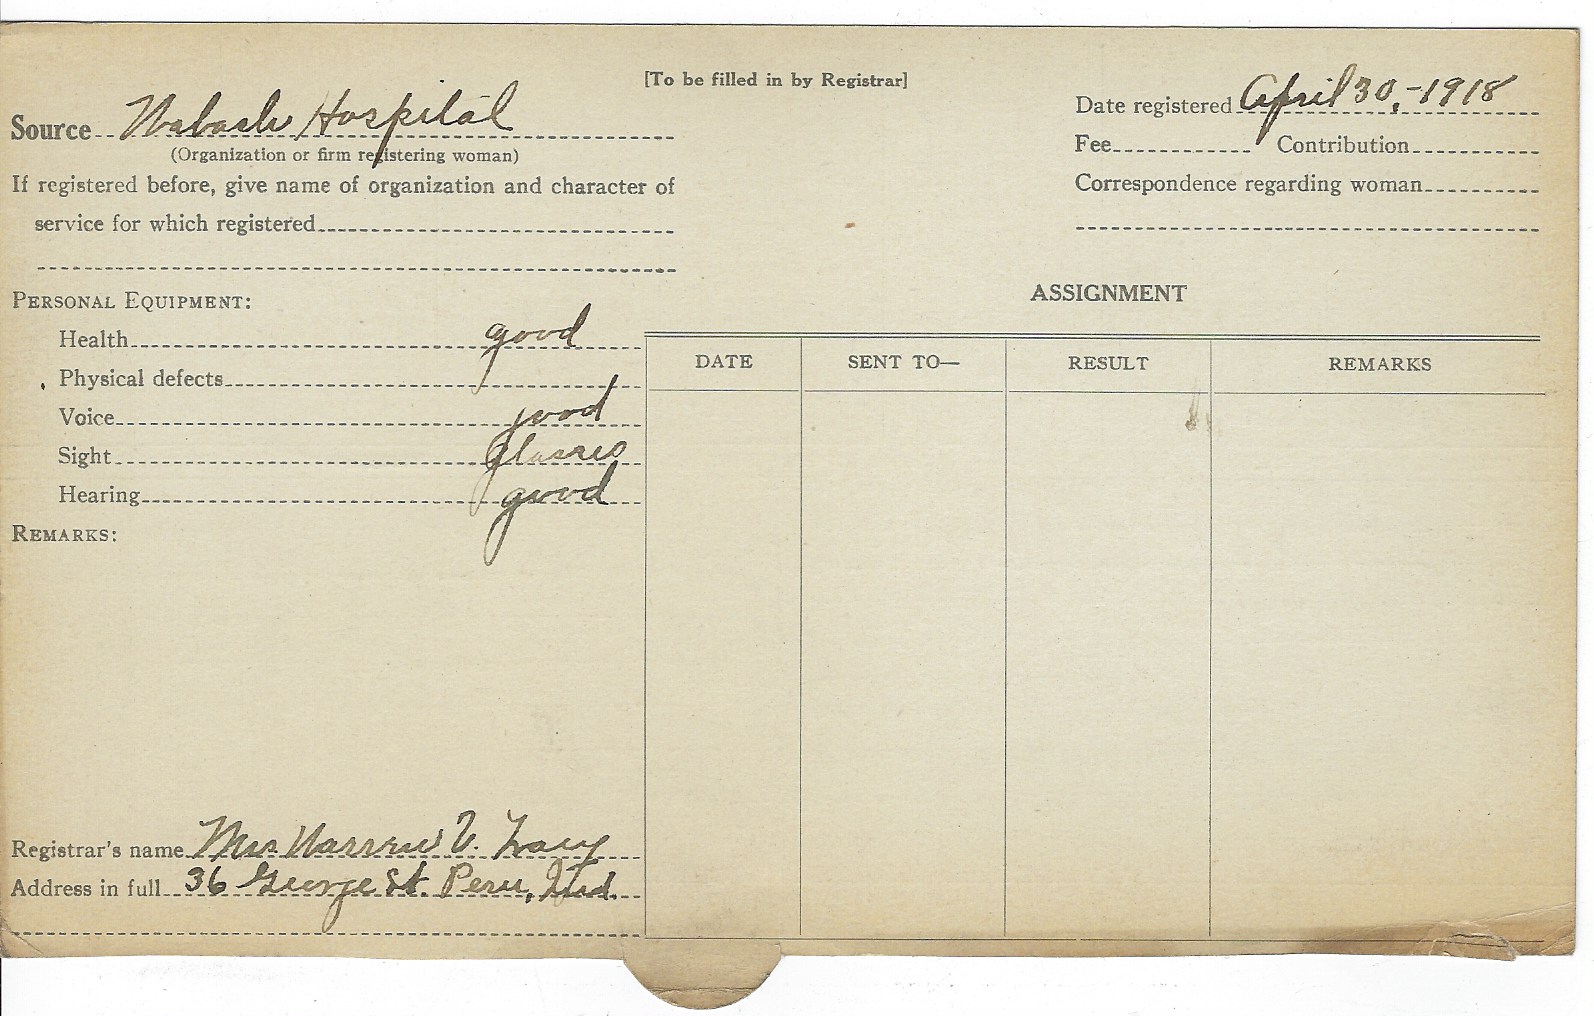 [To be filled in by Registrar]
Source Wabash Hospital
(Organization or firm registering woman)
If registered before, give name of organization and character of
service for which registered
Date registered April 30,-1918
Fee Contribution
Correspondence regarding woman
PERSONAL EQUIPMENT:
Health good
Physical defects
Voice good
Sight glasses
Hearing good
REMARKS:
Registrar's name Mrs Warren V.
Address in full 36 George St. Peru, Ind.
ASSIGNMENT
DATE SENT TO— RESULT REMARKS